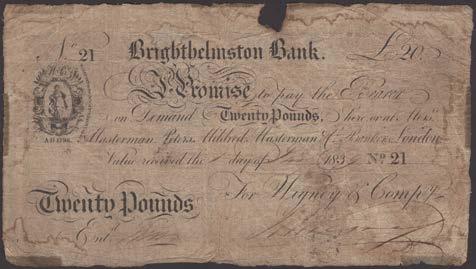 No. 21 Brighthelmston Bank. £20.
I Promise to pay the Bearer
on Demand Twenty Pounds, here or at Messrs.
Masterman, Peters, Mildred, Masterman & Co. Bankers London
Value received the day of 183 No 21
For Wigney & Compy.
Twenty Pounds
Entd.